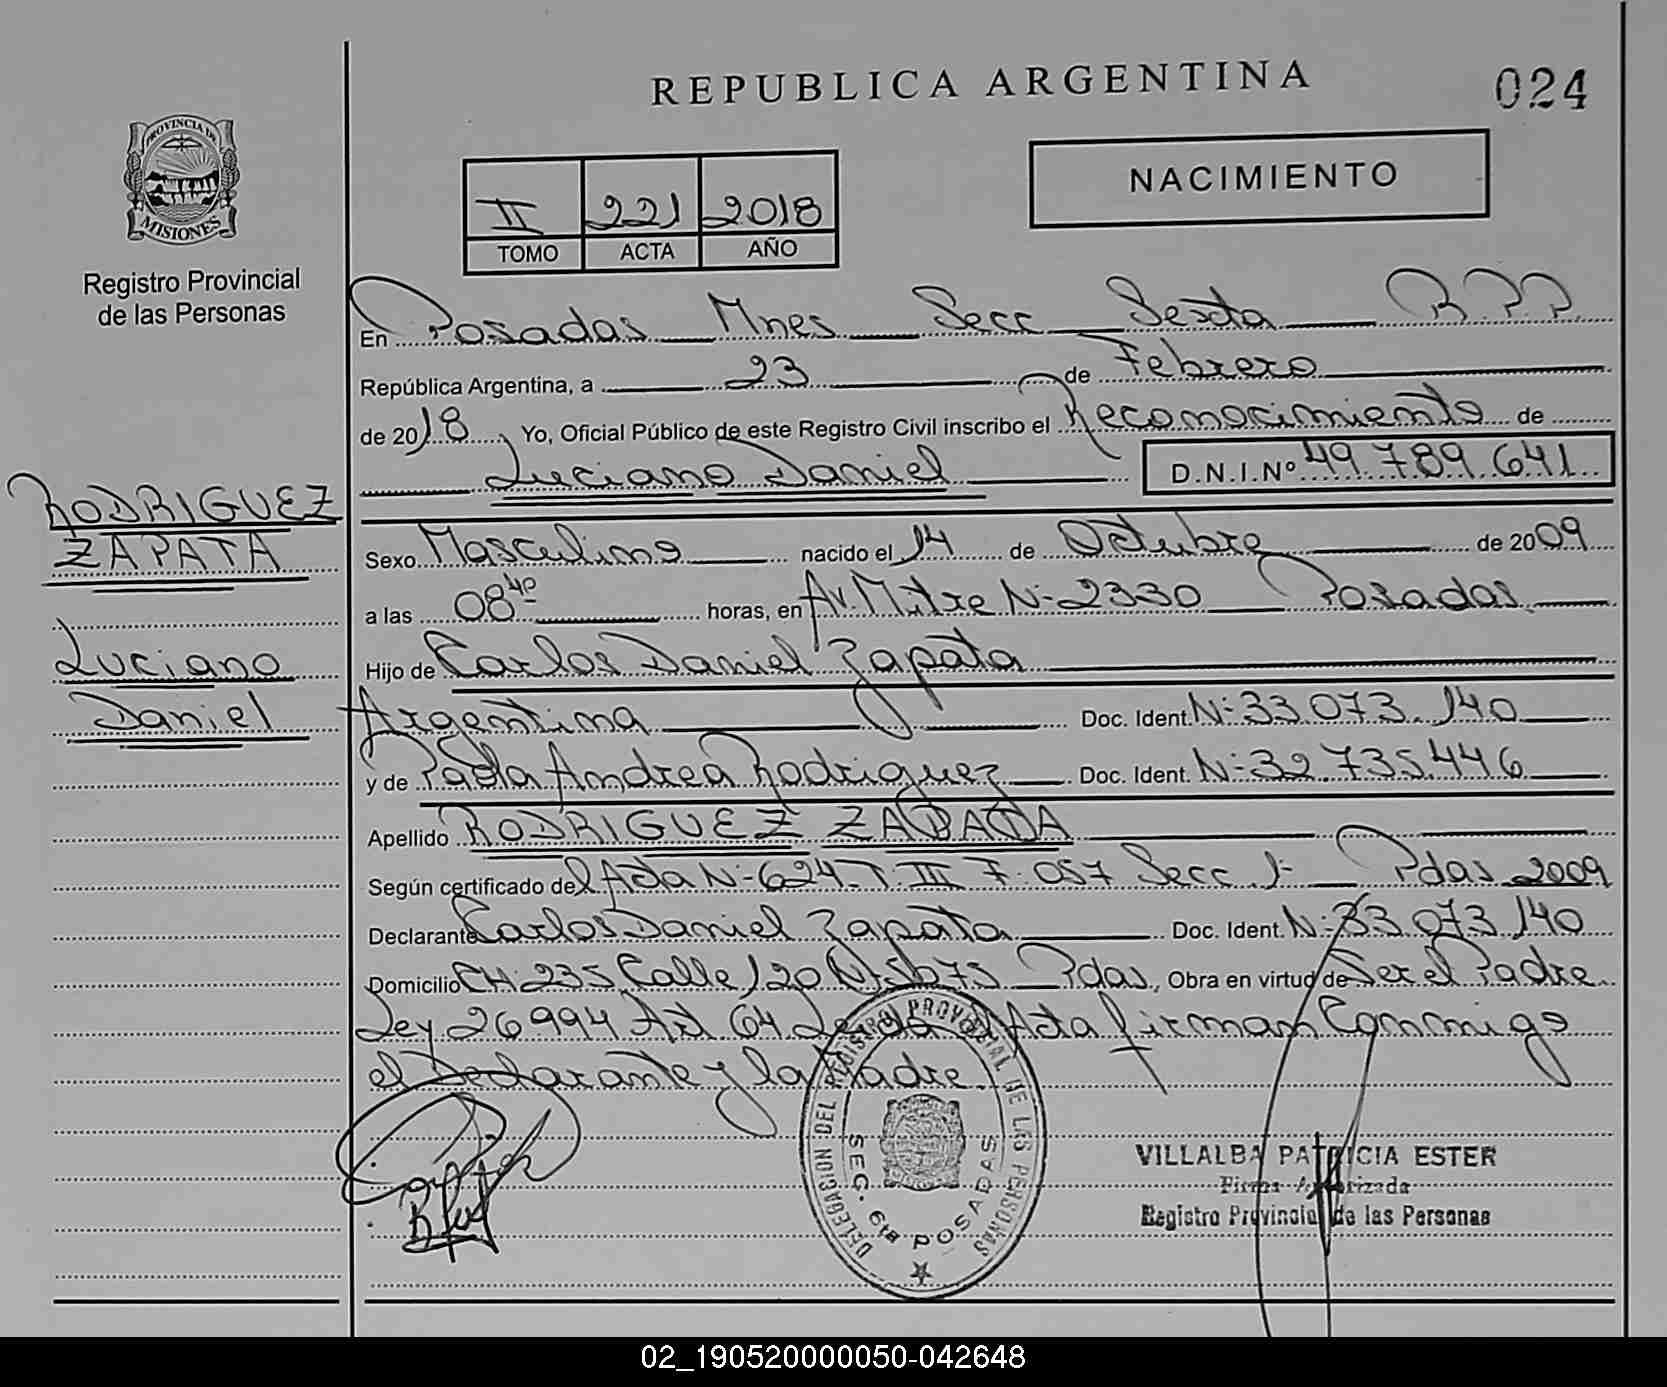 REPUBLICA ARGENTINA
024
PROVINCIA DE
MISIONES
Registro Provincial
de las Personas
NACIMIENTO
II 221 2018
TOMO ACTA AÑO
En Posadas Mnes Secc Sexta R.P.P.
República Argentina, a 23 de Febrero
de 2018 Yo, Oficial Público de este Registro Civil inscribo el Reconocimiento de
Luciano Daniel D.N.I.Nº 49.789.641
RODRIGUEZ
ZAPATA
Luciano
Daniel
Sexo Masculino nacido el 14 de Octubre de 2009
a las 08 40 horas, en Av. Mitre N- 2330 Posadas
Hijo de Carlos Daniel Zapata
Argentina Doc. Ident. N- 33.073.140
y de Paola Andrea Rodriguez Doc. Ident. N- 32.735.446
Apellido RODRIGUEZ ZAPATA
Según certificado del Acta N- 624 T. III F. 057 Secc 1- Pdas 2009
Declarante Carlos Daniel Zapata Doc. Ident. N- 33.073.140
Domicilio CH. 235 Calle 120 N- 5075 Pdas, Obra en virtud de Ser el Padre
Ley 26994 Art 64 Acta firman Conmigo
el Declarante y la Madre.
DELEGACION DEL REGISTRO PROVINCIAL DE LAS PERSONAS
SEC. 6ta POSADAS
VILLALBA PATRICIA ESTER
Firma Autorizada
Registro Provincial de las Personas
02_190520000050-042648